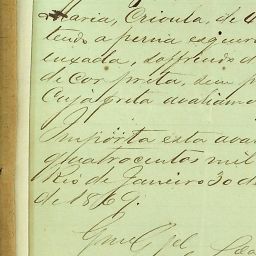 Maria, Crioula, de 4
tendo a perna esquer
inxada, soffrendo d
de cor preta, cuja
Cuja preta avaliamo
Importa esta ava
quatrocentos mil
Rio de Janeiro 30 d
de 1869.